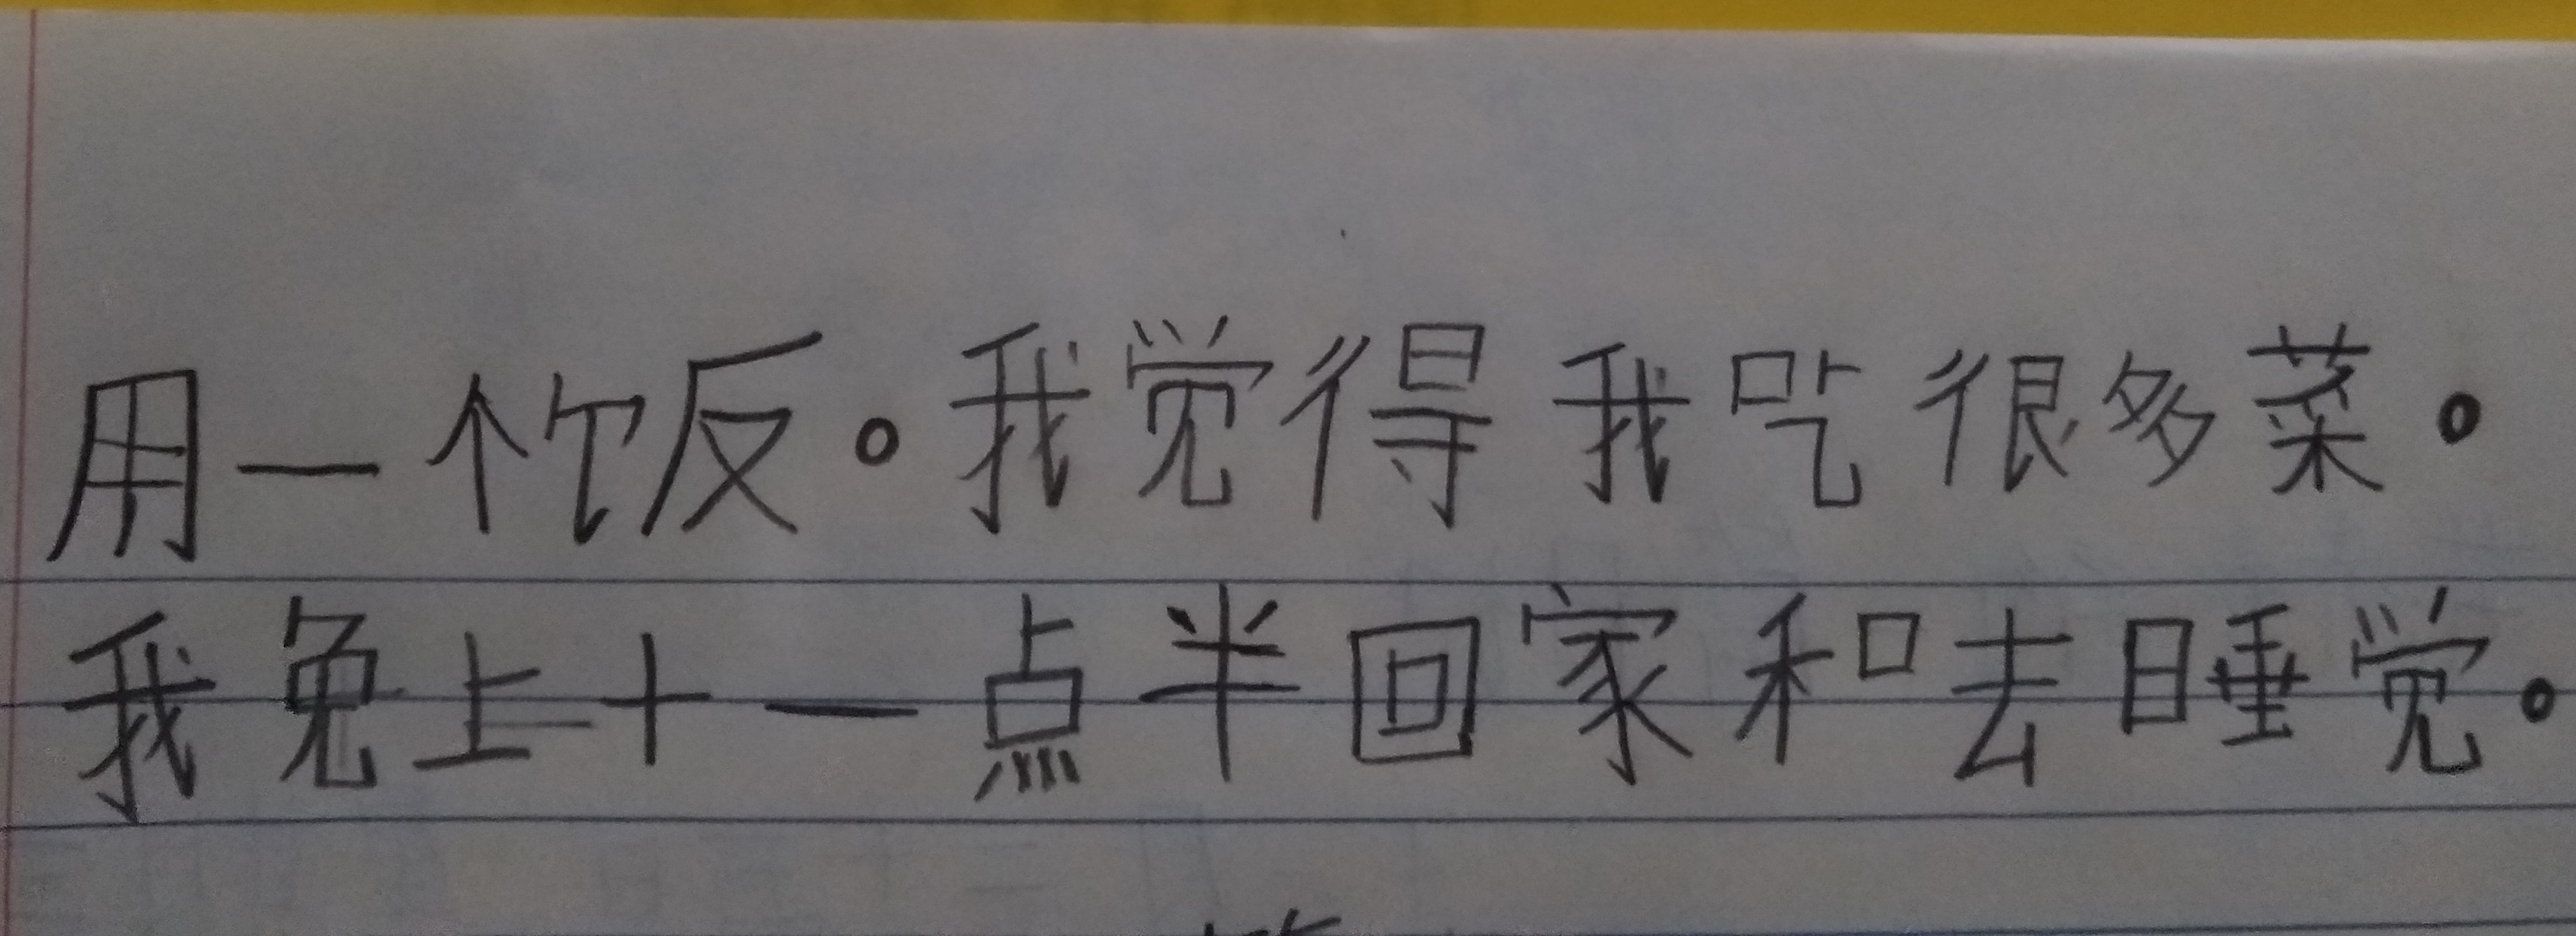 用一个饭。我觉得我吃很多菜。
我免上十一点半回家和去睡觉。